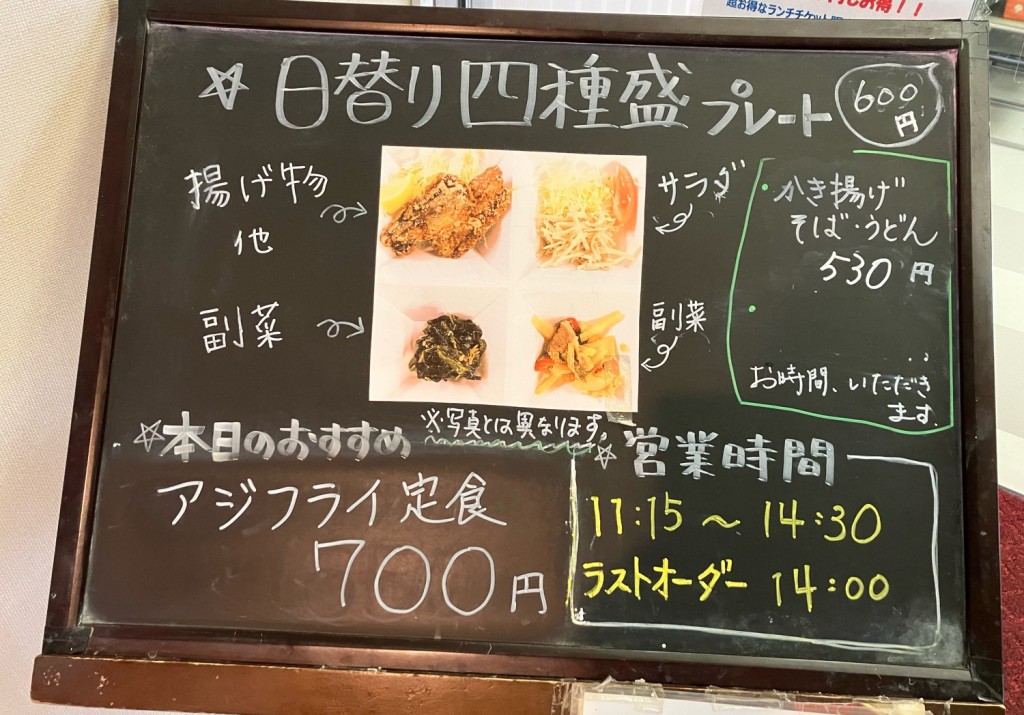 超お得なランチチケット
☆日替り四種盛プレート
600
円
揚げ物
他
サラダ
副菜
副菜
※写真とは異なります。
・かき揚げ
そば・うどん
530円
・
お時間、いただき
ます。
☆本日のおすすめ
アジフライ定食
700円
☆営業時間
11:15～14:30
ラストオーダー 14:00